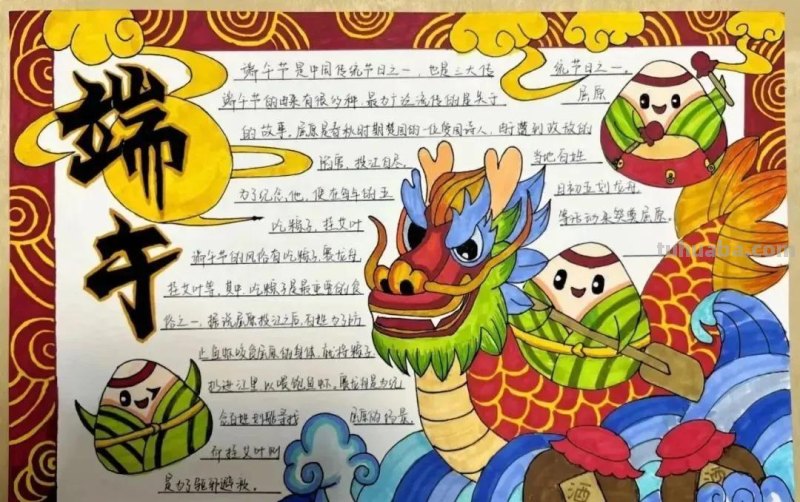 端午
端午节是中国传统节日之一，也是三大传统节日之一。
端午节的由来有很多种，最广泛流传的是关于屈原
的故事。屈原是春秋时期楚国的一位爱国诗人，由于遭到政敌的
陷害，投江自尽。当地百姓
为了纪念他，便在每年的五月初五划龙舟
吃粽子，挂艾叶等活动来祭奠屈原。
端午节的风俗有吃粽子、赛龙舟、
挂艾叶等，其中，吃粽子是最重要的食
俗之一，据说屈原投江之后，百姓为了防
止鱼虾咬食屈原的身体，就将粽子
扔进江里以喂饱鱼虾。赛龙舟是为纪
念百姓划船寻找屈原的场景。
而挂艾叶则
是为了驱邪避秽。
酒
酒
tuhuaba.com